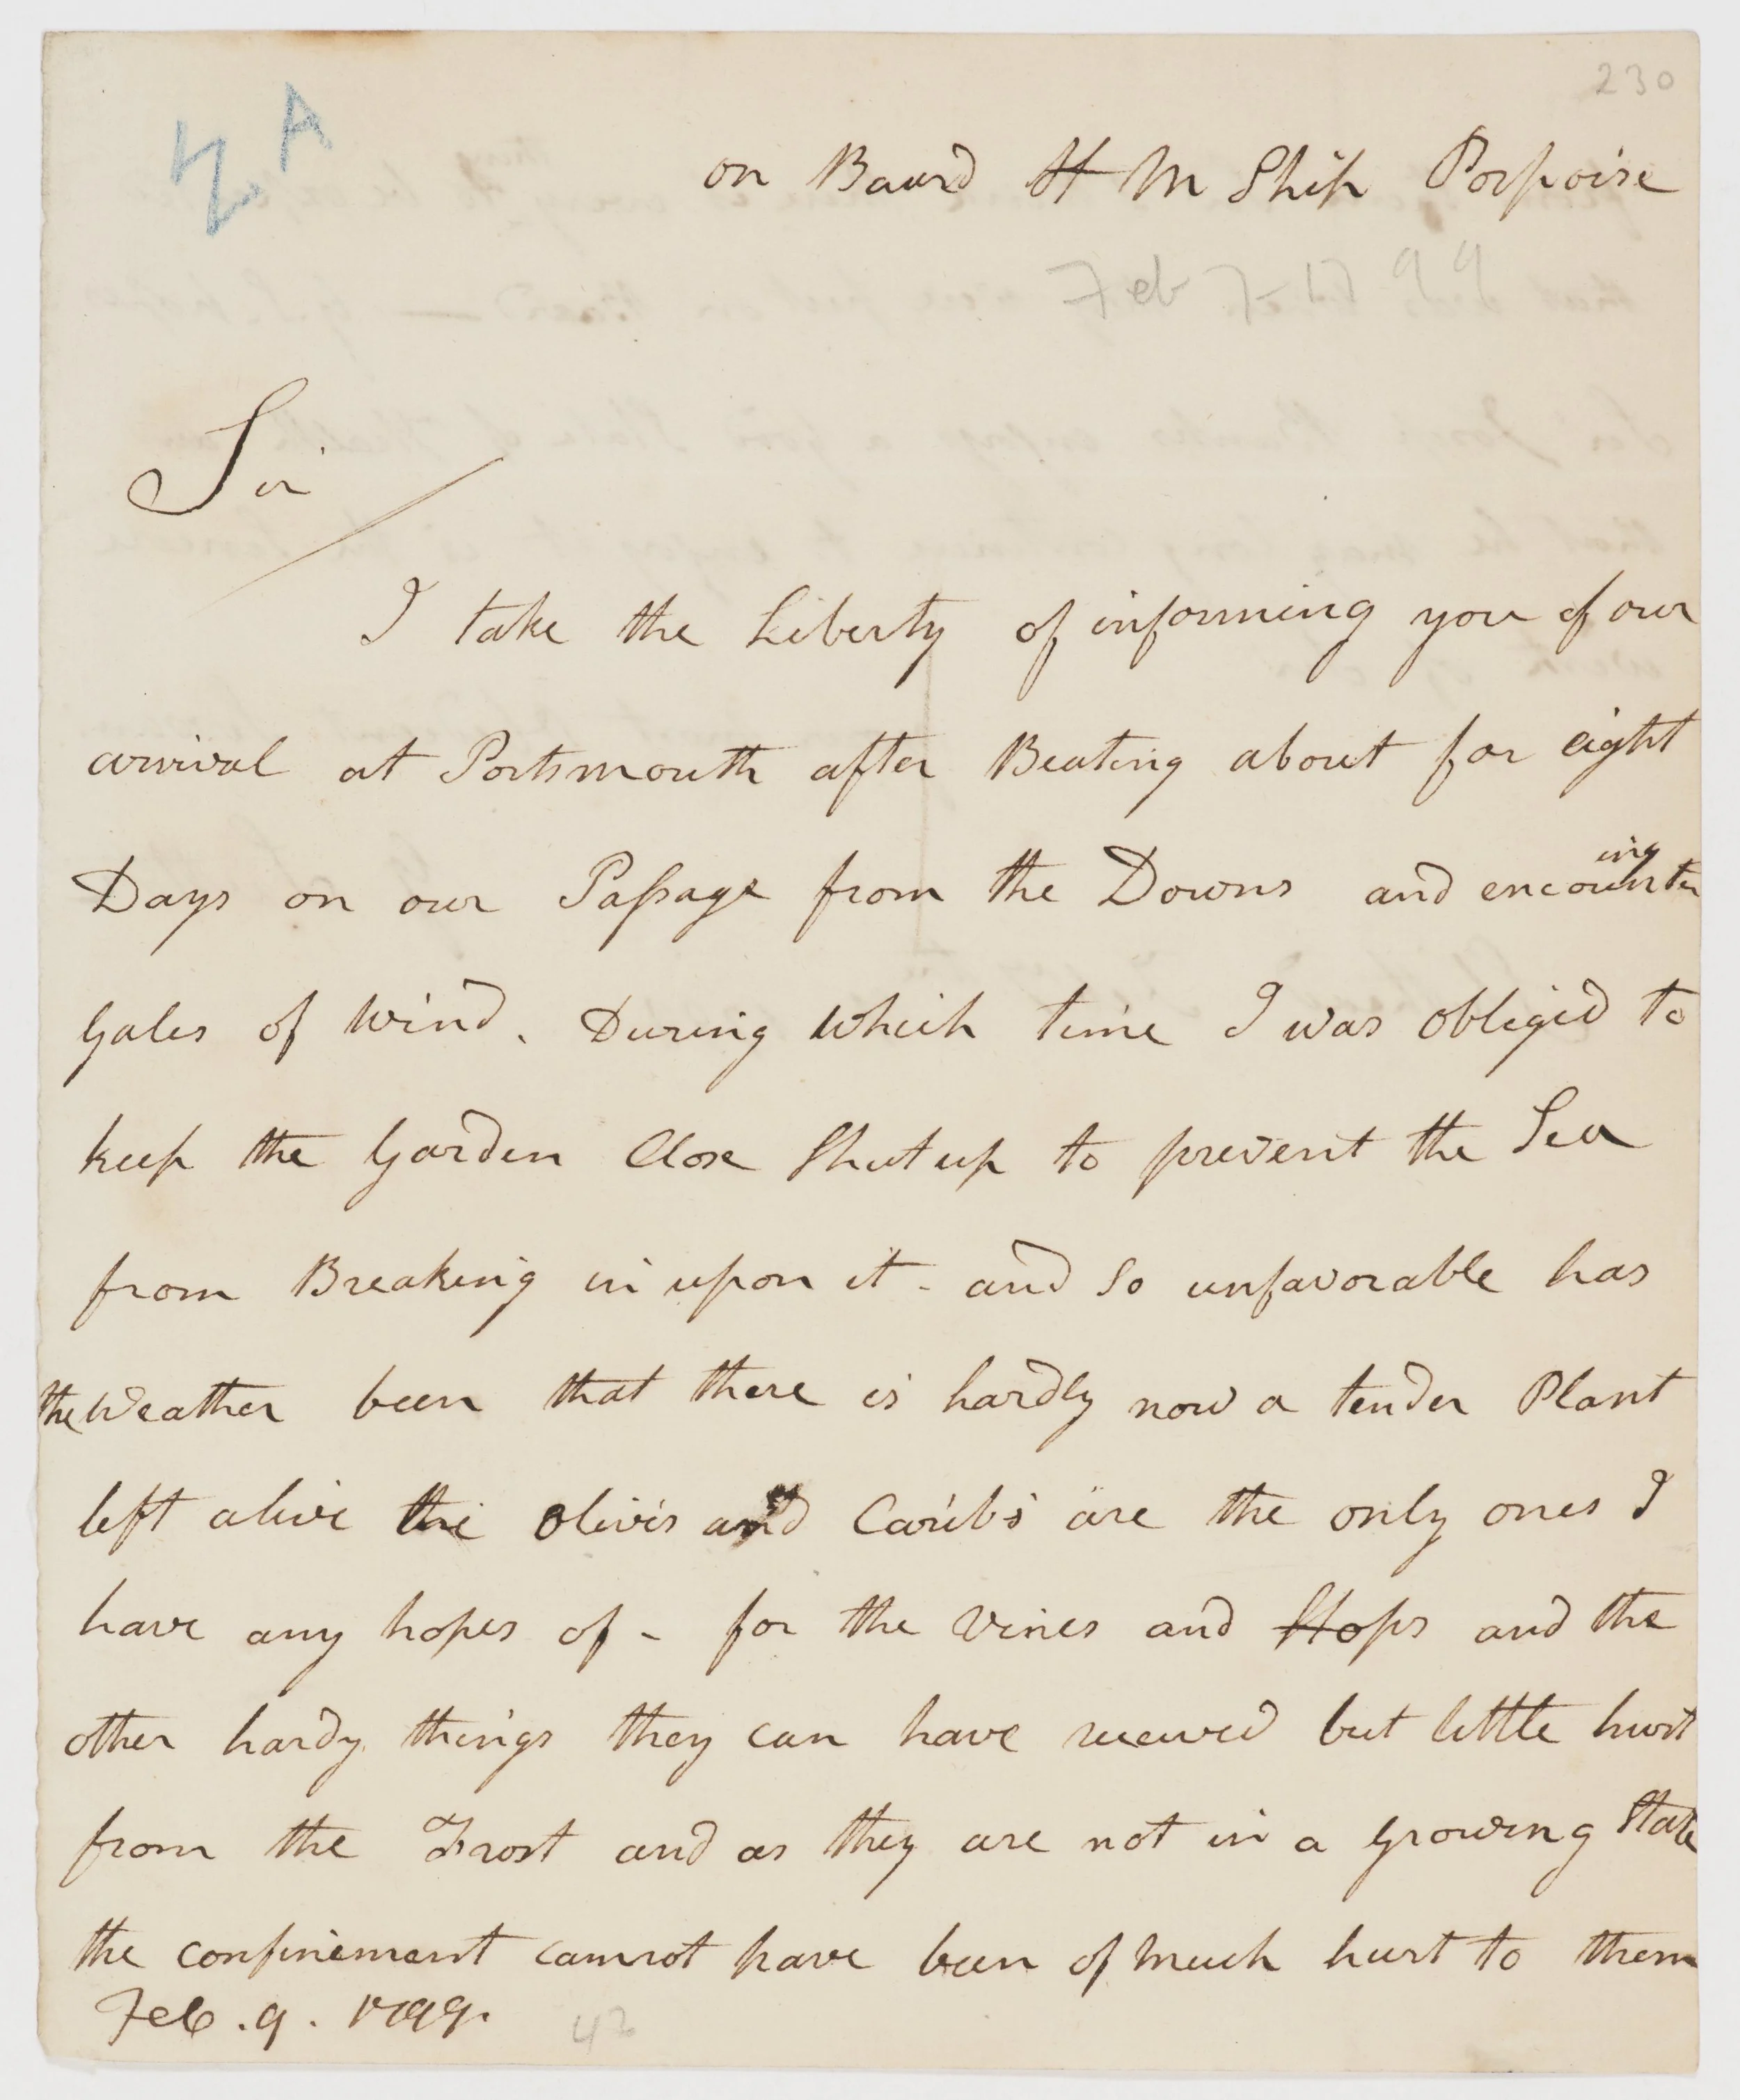 230
A
on Baurd H M Ship Porpoise
Feb 7-1799
Sir
I take the Liberty of informing you of our
arrival at Portsmouth after Beating about for eight
Days on our Passage from the Downs and encounter
ing
Gales of Wind. During which time I was obliged to
keep the Garden Close Shut up to prevent the Sea
from Breaking in upon it - and So unfavorable has
the Weather been that there is hardly now a tender Plant
left alive the Olives and Carib's are the only ones I
have any hopes of - for the Vines and Hops and the
other hardy things they can have received but little hurt
from the Frost and as they are not in a growing State
the confinement cannot have been of Much hurt to them
Feb. 9. 1799.
42